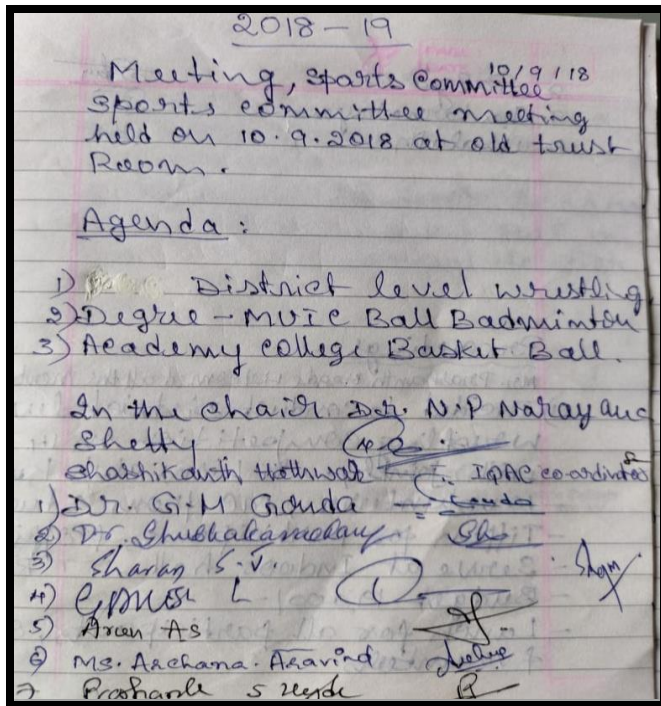 2018-19
10/9/18
Meeting, Sports Committee
Sports committee meeting
held on 10.9.2018 at old trust
Room.
Agenda :
1) District level wrestling
2) Degree - MVIC Ball Badminton
3) Academy college Basket Ball.
In the chair Dr. N.P Narayana
Shetty
Shashikanth Hathwar IQAC co-ordinator
1) Dr. G.M Gouda
2) Dr.
3) Sharan S.V.
4) Ganesh L
5) Arun AS
6) Ms. Archana. Aravind
7